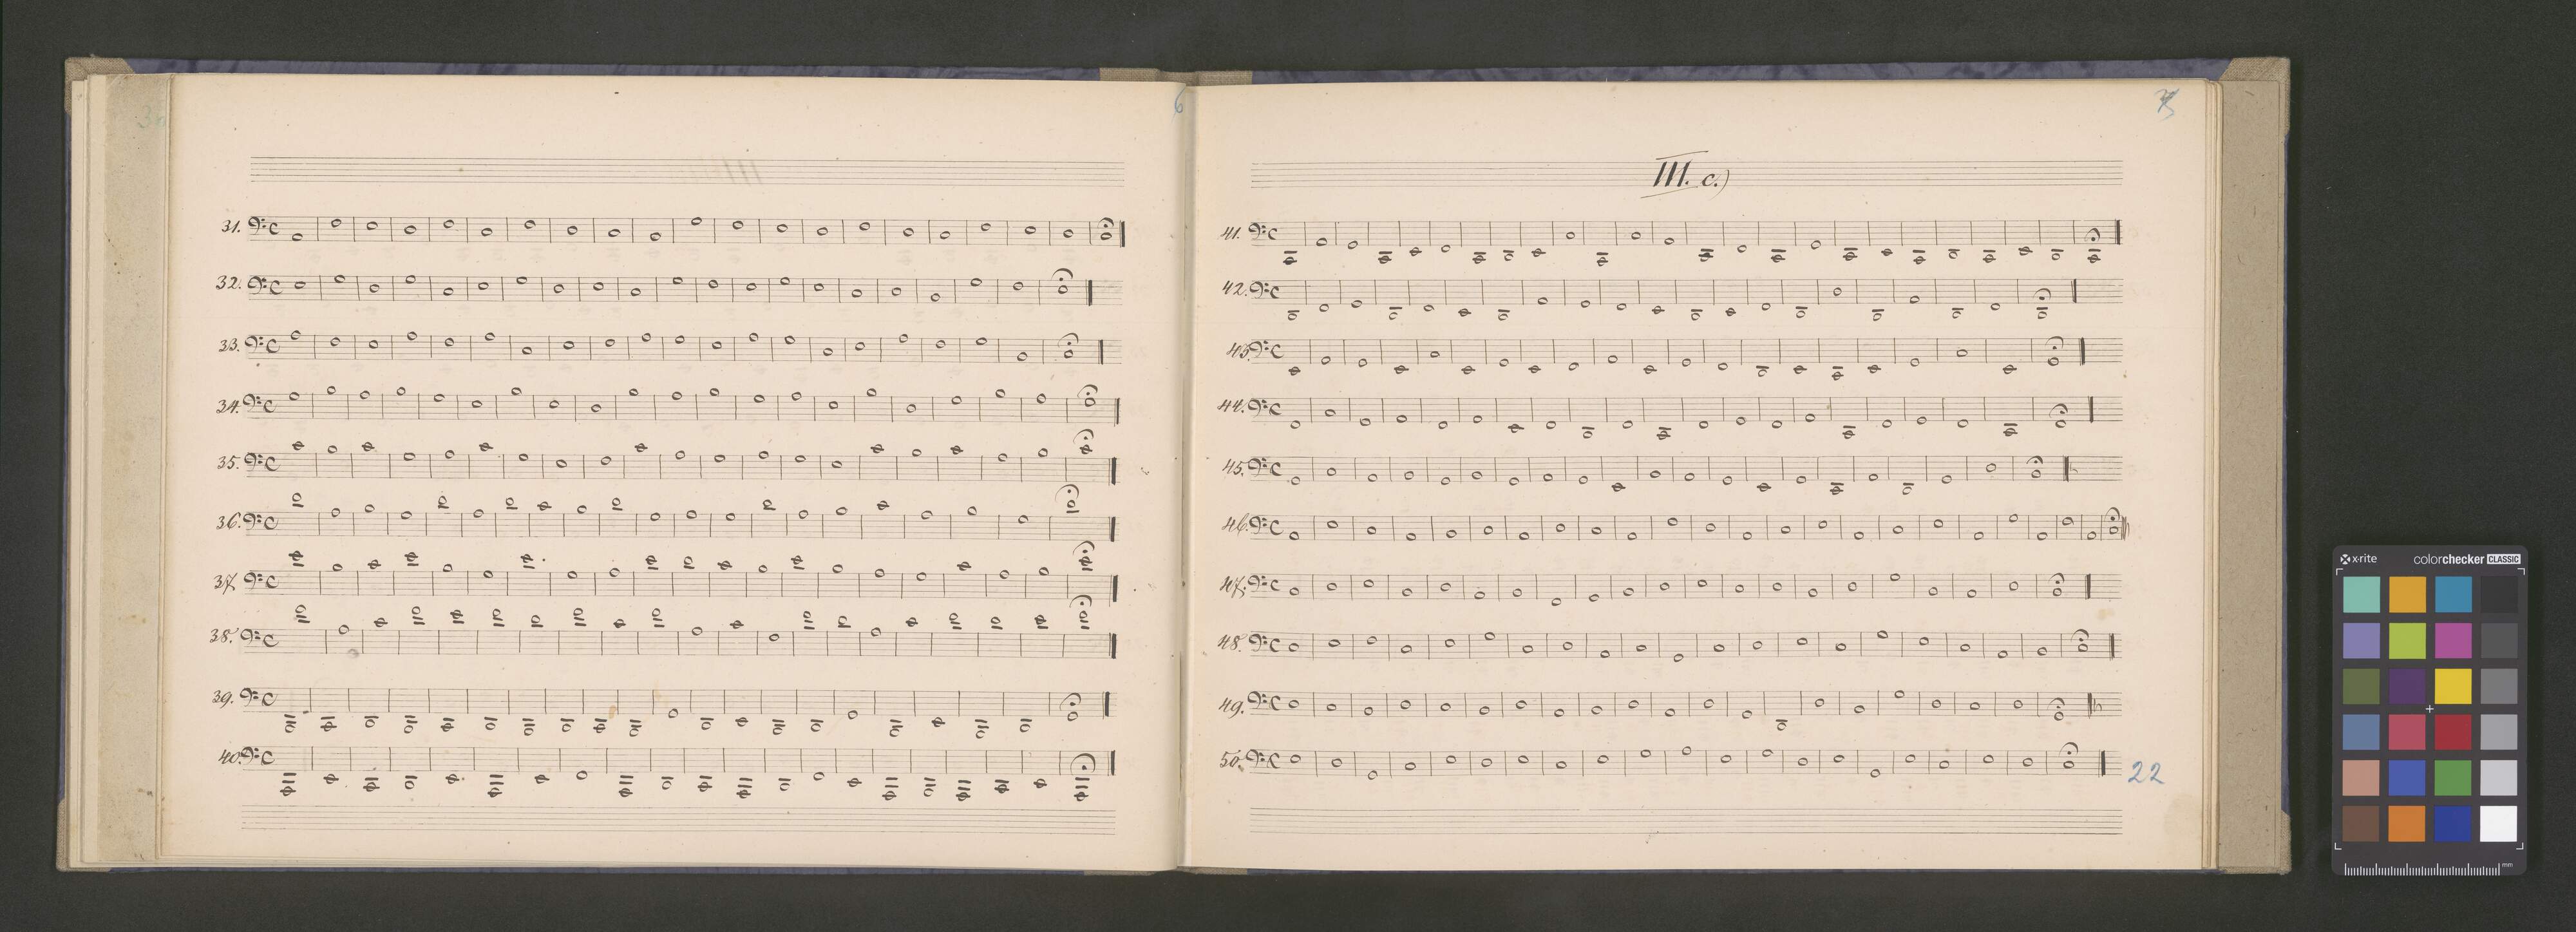 6
31.
32.
33.
34.
35.
36.
37.
38.
39.
40.
III. c.)
41.
42.
43.
44.
45.
46.
47.
48.
49.
50.
22
x-rite colorchecker CLASSIC
mm